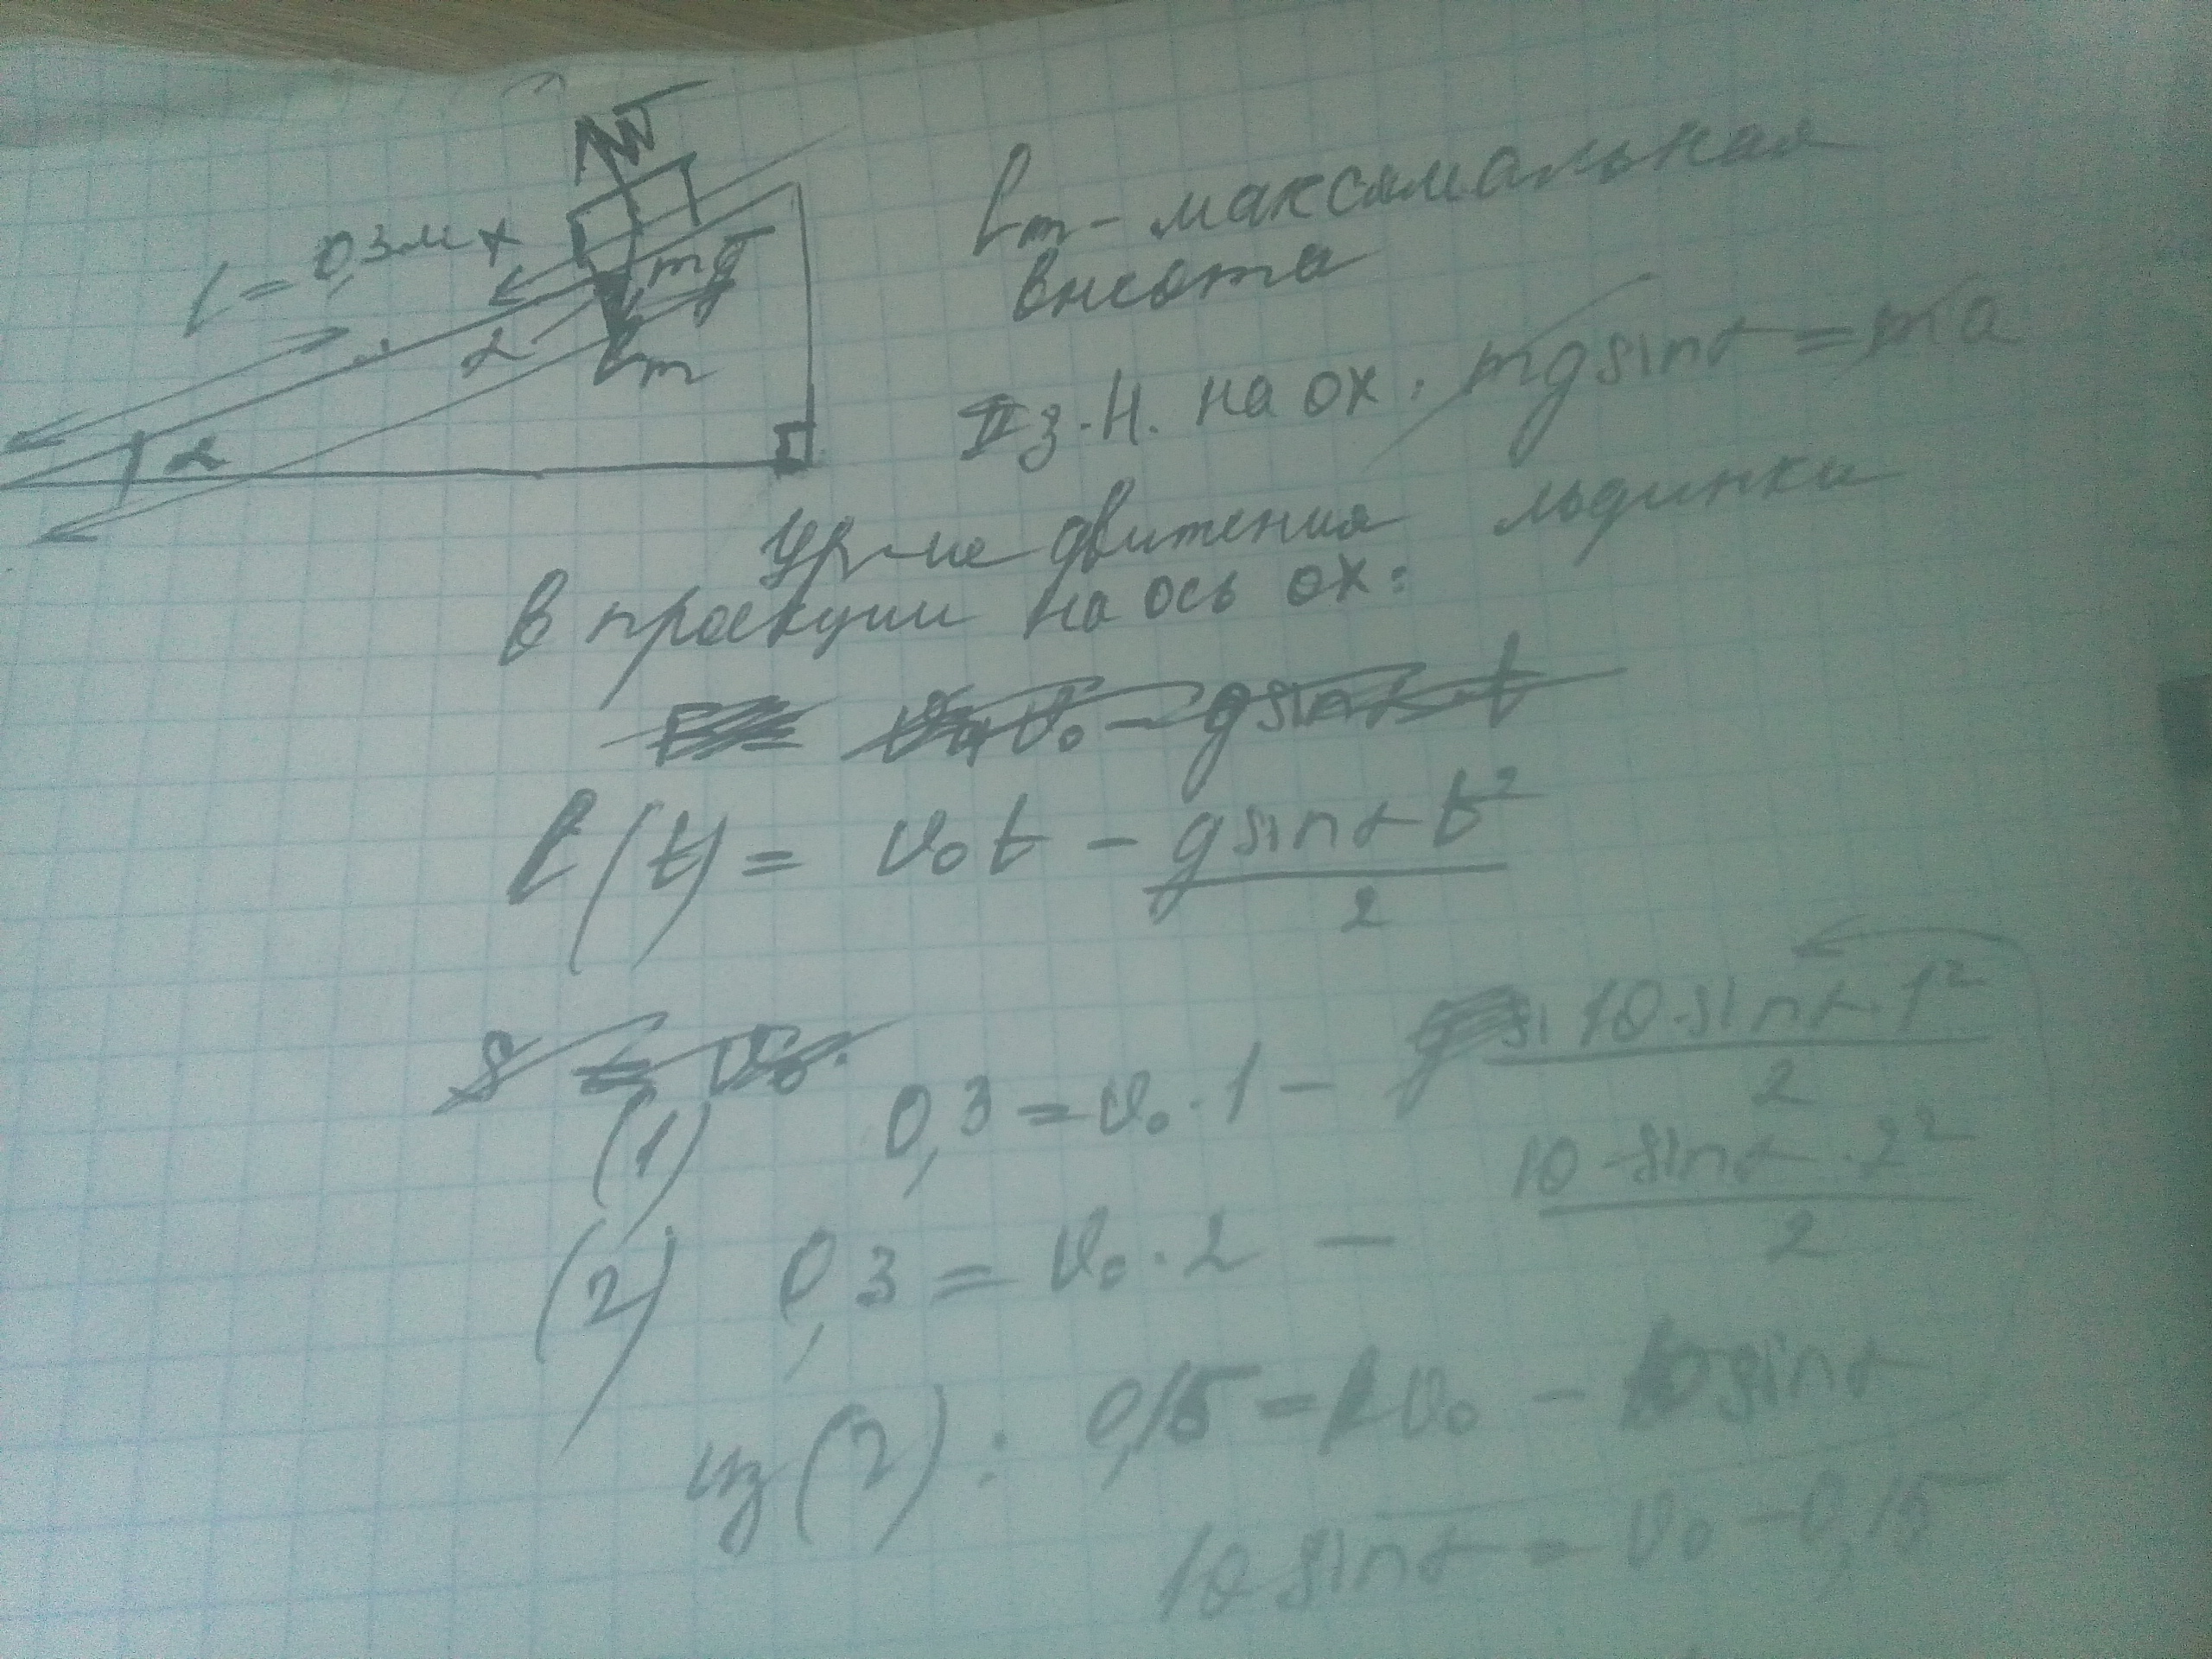 N
l = 0,3м x
mg
α
lm
α
lm - максимальная
высота
II з.Н. на ox: mg sinα = ma
Ур-ие движения льдинки
в проекции на ось ox:
v₀ - g sinα t
l(t) = v₀t - g sinα t² / 2
S = v₀.
(1) 0,3 = v₀ · 1 - 10 · sinα · 1² / 2
(2) 0,3 = v₀ · 2 - 10 · sinα · 2² / 2
из (2): 0,15 = v₀ - 10 sinα
10 sinα = v₀ - 0,15